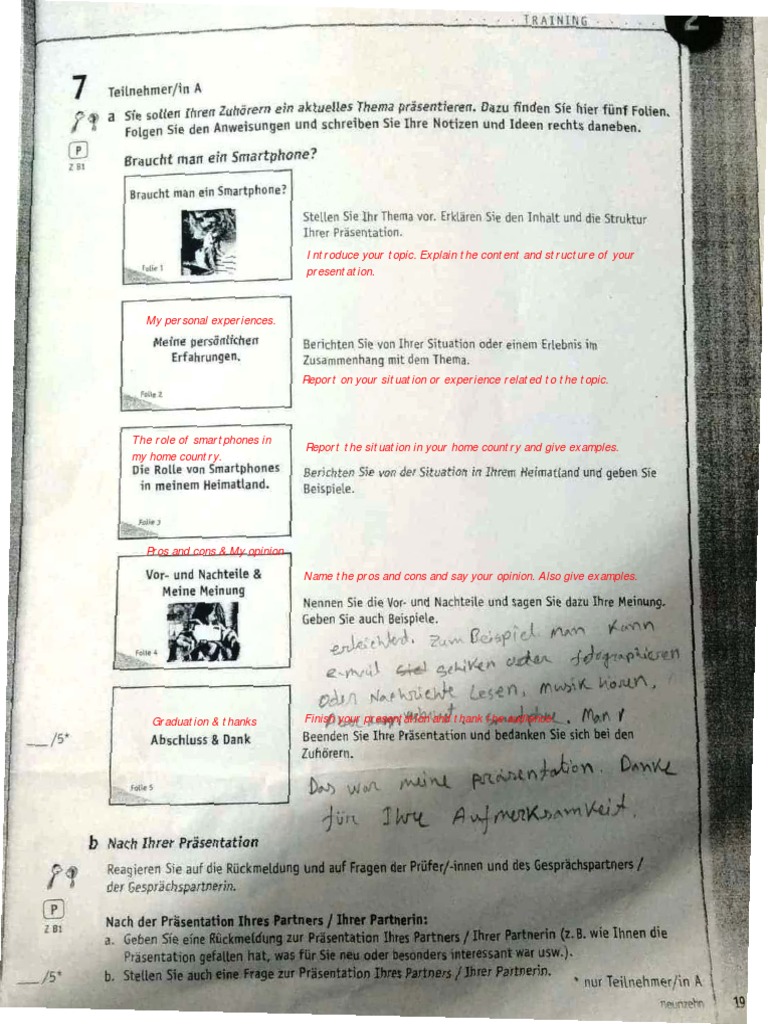 TRAINING
2
7 Teilnehmer/in A
a Sie sollen Ihren Zuhörern ein aktuelles Thema präsentieren. Dazu finden Sie hier fünf Folien.
Folgen Sie den Anweisungen und schreiben Sie Ihre Notizen und Ideen rechts daneben.
P
Z B1
Braucht man ein Smartphone?
Braucht man ein Smartphone?
Folie 1
Stellen Sie Ihr Thema vor. Erklären Sie den Inhalt und die Struktur
Ihrer Präsentation.
Introduce your topic. Explain the content and structure of your
presentation.
My personal experiences.
Meine persönlichen
Erfahrungen.
Folie 2
Berichten Sie von Ihrer Situation oder einem Erlebnis im
Zusammenhang mit dem Thema.
Report on your situation or experience related to the topic.
The role of smartphones in
my home country.
Die Rolle von Smartphones
in meinem Heimatland.
Folie 3
Report the situation in your home country and give examples.
Berichten Sie von der Situation in Ihrem Heimatland und geben Sie
Beispiele.
Pros and cons & My opinion
Vor- und Nachteile &
Meine Meinung
Folie 4
Name the pros and cons and say your opinion. Also give examples.
Nennen Sie die Vor- und Nachteile und sagen Sie dazu Ihre Meinung.
Geben Sie auch Beispiele.
erleichted. Zum Beispiel man kann
e-mail schiken oder fotographieren
oder Nachrichte Lesen, musik hören,
Man
Graduation & thanks
Abschluss & Dank
Folie 5
Finish your presentation and thank the
Beenden Sie Ihre Präsentation und bedanken Sie sich bei den
Zuhörern.
Das war meine präsentation. Danke
für Ihre Aufmerksamkeit.
__/5*
b Nach Ihrer Präsentation
Reagieren Sie auf die Rückmeldung und auf Fragen der Prüfer/-innen und des Gesprächspartners /
der Gesprächspartnerin.
P
Z B1
Nach der Präsentation Ihres Partners / Ihrer Partnerin:
a. Geben Sie eine Rückmeldung zur Präsentation Ihres Partners / Ihrer Partnerin (z. B. wie Ihnen die
Präsentation gefallen hat, was für Sie neu oder besonders interessant war usw.).
b. Stellen Sie auch eine Frage zur Präsentation Ihres Partners / Ihrer Partnerin.
__/5*
* nur Teilnehmer/in A
neunzehn 19